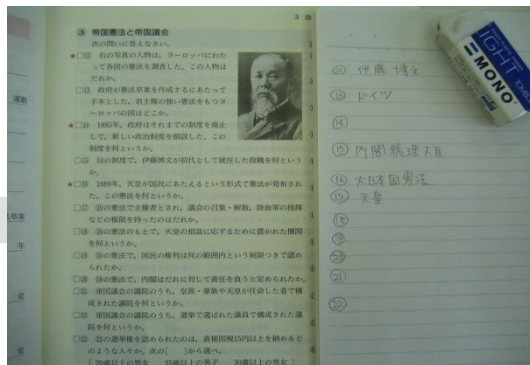 ③ 帝国憲法と帝国議会
次の問いに答えなさい。
★□⑫ 右の写真の人物は，ヨーロッパにわた
って各国の憲法を調査した。この人物は
だれか。
□⑬ 政府が憲法草案を作成するにあたって
手本とした，君主権の強い憲法をもつヨ
ーロッパの国はどこか。
★□⑭ 1885年，政府はそれまでの制度を廃止
して，新しい政治制度を創設した。この
制度を何というか。
□⑮ ⑭の制度で，伊藤博文が初代として就任した役職を何という
か。
★□⑯ 1889年，天皇が国民にあたえるという形式で憲法が発布され
た。この憲法を何というか。
□⑰ ⑯の憲法で主権者とされ，議会の召集・解散，陸海軍の指揮
などの権限を持ったのはだれか。
□⑱ ⑯の憲法のもとで，天皇の相談に応ずるために置かれた機関
を何というか。
□⑲ ⑯の憲法で，国民の権利は何の範囲内という制限つきで認め
られたか。
□⑳ ⑯の憲法で，内閣はだれに対して責任を負うと定められたか。
□㉑ 帝国議会の議院のうち，皇族・華族や天皇が任命した者で構
成された議院を何というか。
□㉒ 帝国議会の議院のうち，選挙で選ばれた議員で構成された議
院を何というか。
□㉓ ㉒の選挙権を認められたのは，直接国税15円以上を納めるど
のような人々か。次の〔　〕から選べ。
〔20歳以上の男女　25歳以上の男子　30歳以上の男女〕
伊藤博文
⑬ ドイツ
⑭
⑮ 内閣総理大臣
⑯ 大日本国憲法
⑰ 天皇
⑱
⑲
⑳
㉑
㉒
LIGHT
MONO